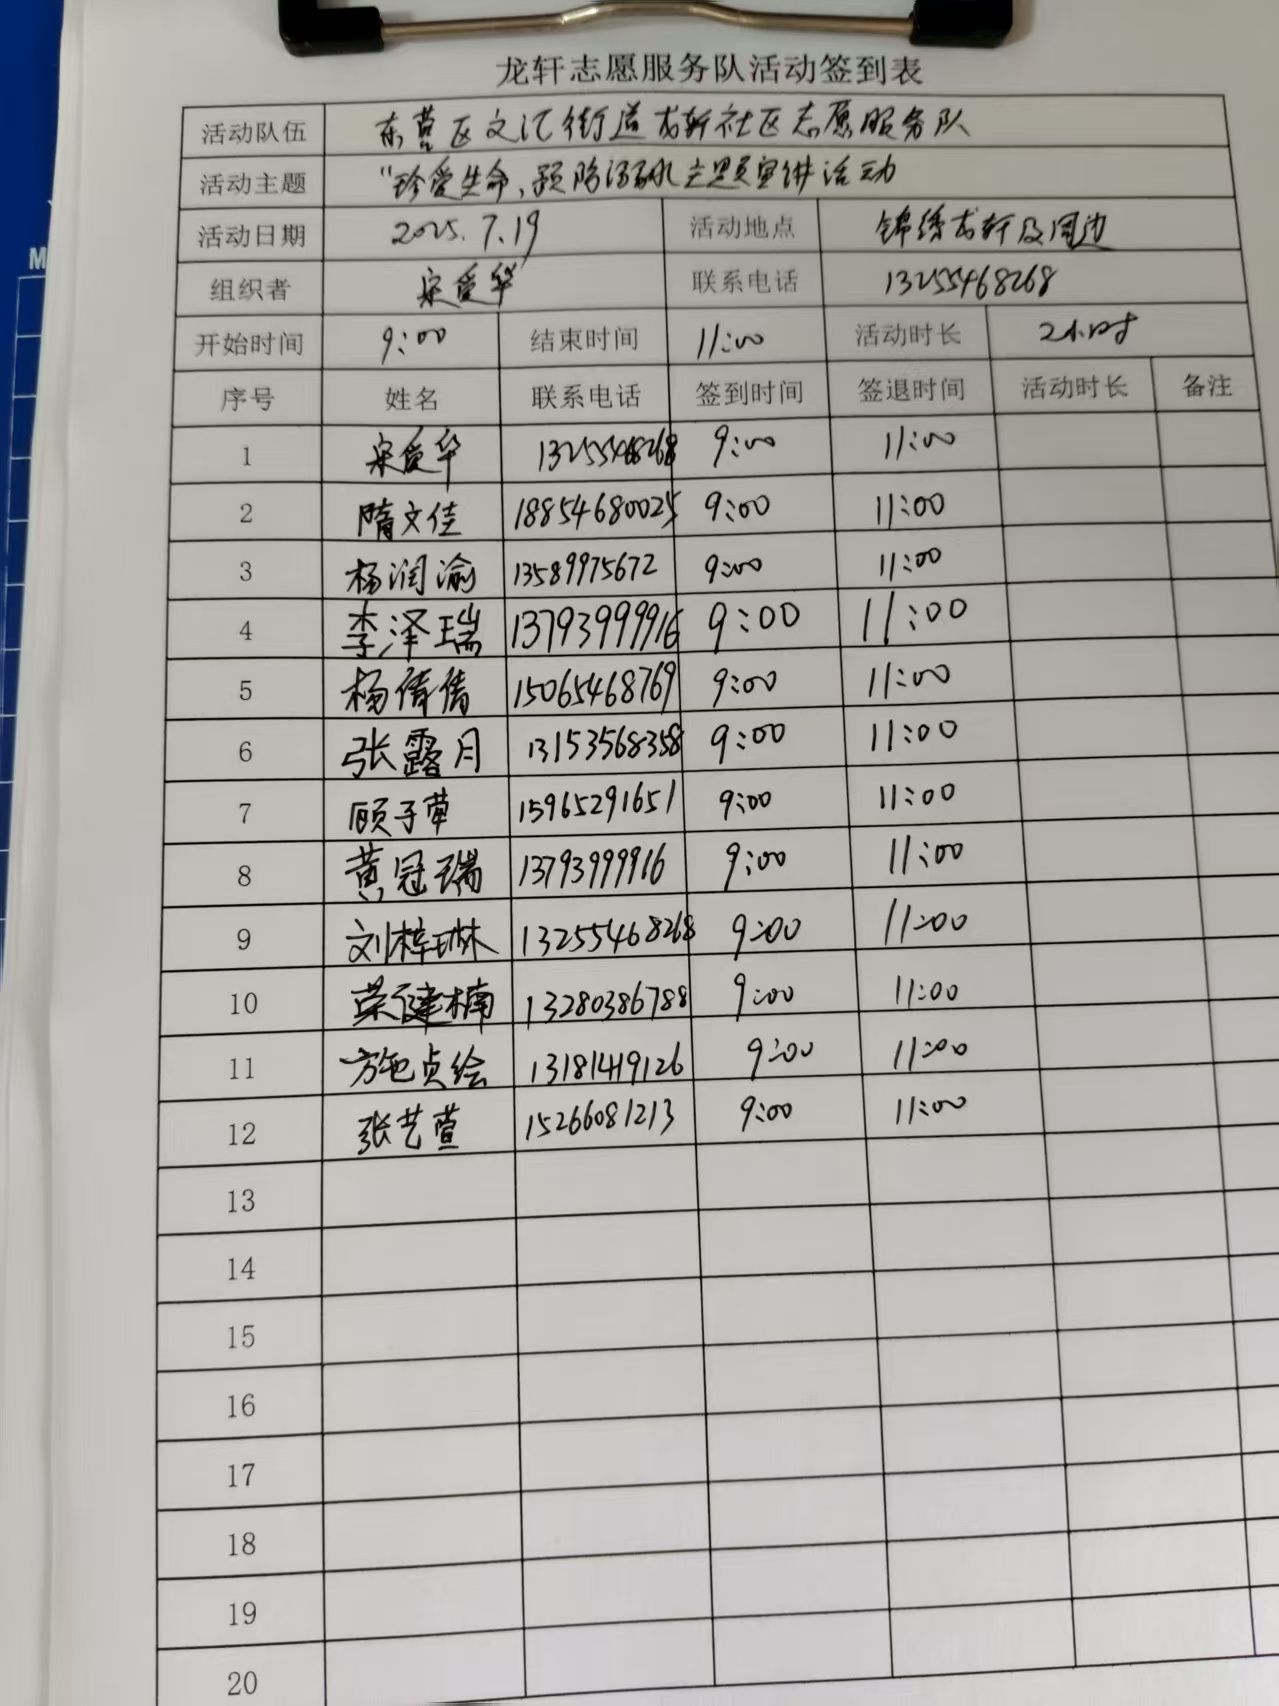 龙轩志愿服务队活动签到表
活动队伍 东营区文汇街道龙轩社区志愿服务队
活动主题 "珍爱生命,预防溺水主题宣讲活动
活动日期 2025.7.19 活动地点 锦绣龙轩及周边
组织者 宋爱华 联系电话 13255468268
开始时间 9:00 结束时间 11:00 活动时长 2小时
序号 姓名 联系电话 签到时间 签退时间 活动时长 备注
1 宋爱华 13255468268 9:00 11:00
2 隋文佳 18854680025 9:00 11:00
3 杨润渝 13589975672 9:00 11:00
4 李泽瑞 13793999916 9:00 11:00
5 杨倩倩 15065468769 9:00 11:00
6 张露月 13153568358 9:00 11:00
7 顾子荦 15965291651 9:00 11:00
8 黄冠瑞 13793999916 9:00 11:00
9 刘梓琳 13255468268 9:00 11:00
10 荣健楠 13280386788 9:00 11:00
11 贞绘 13181419126 9:00 11:00
12 张艺萱 15266081213 9:00 11:00
13
14
15
16
17
18
19
20